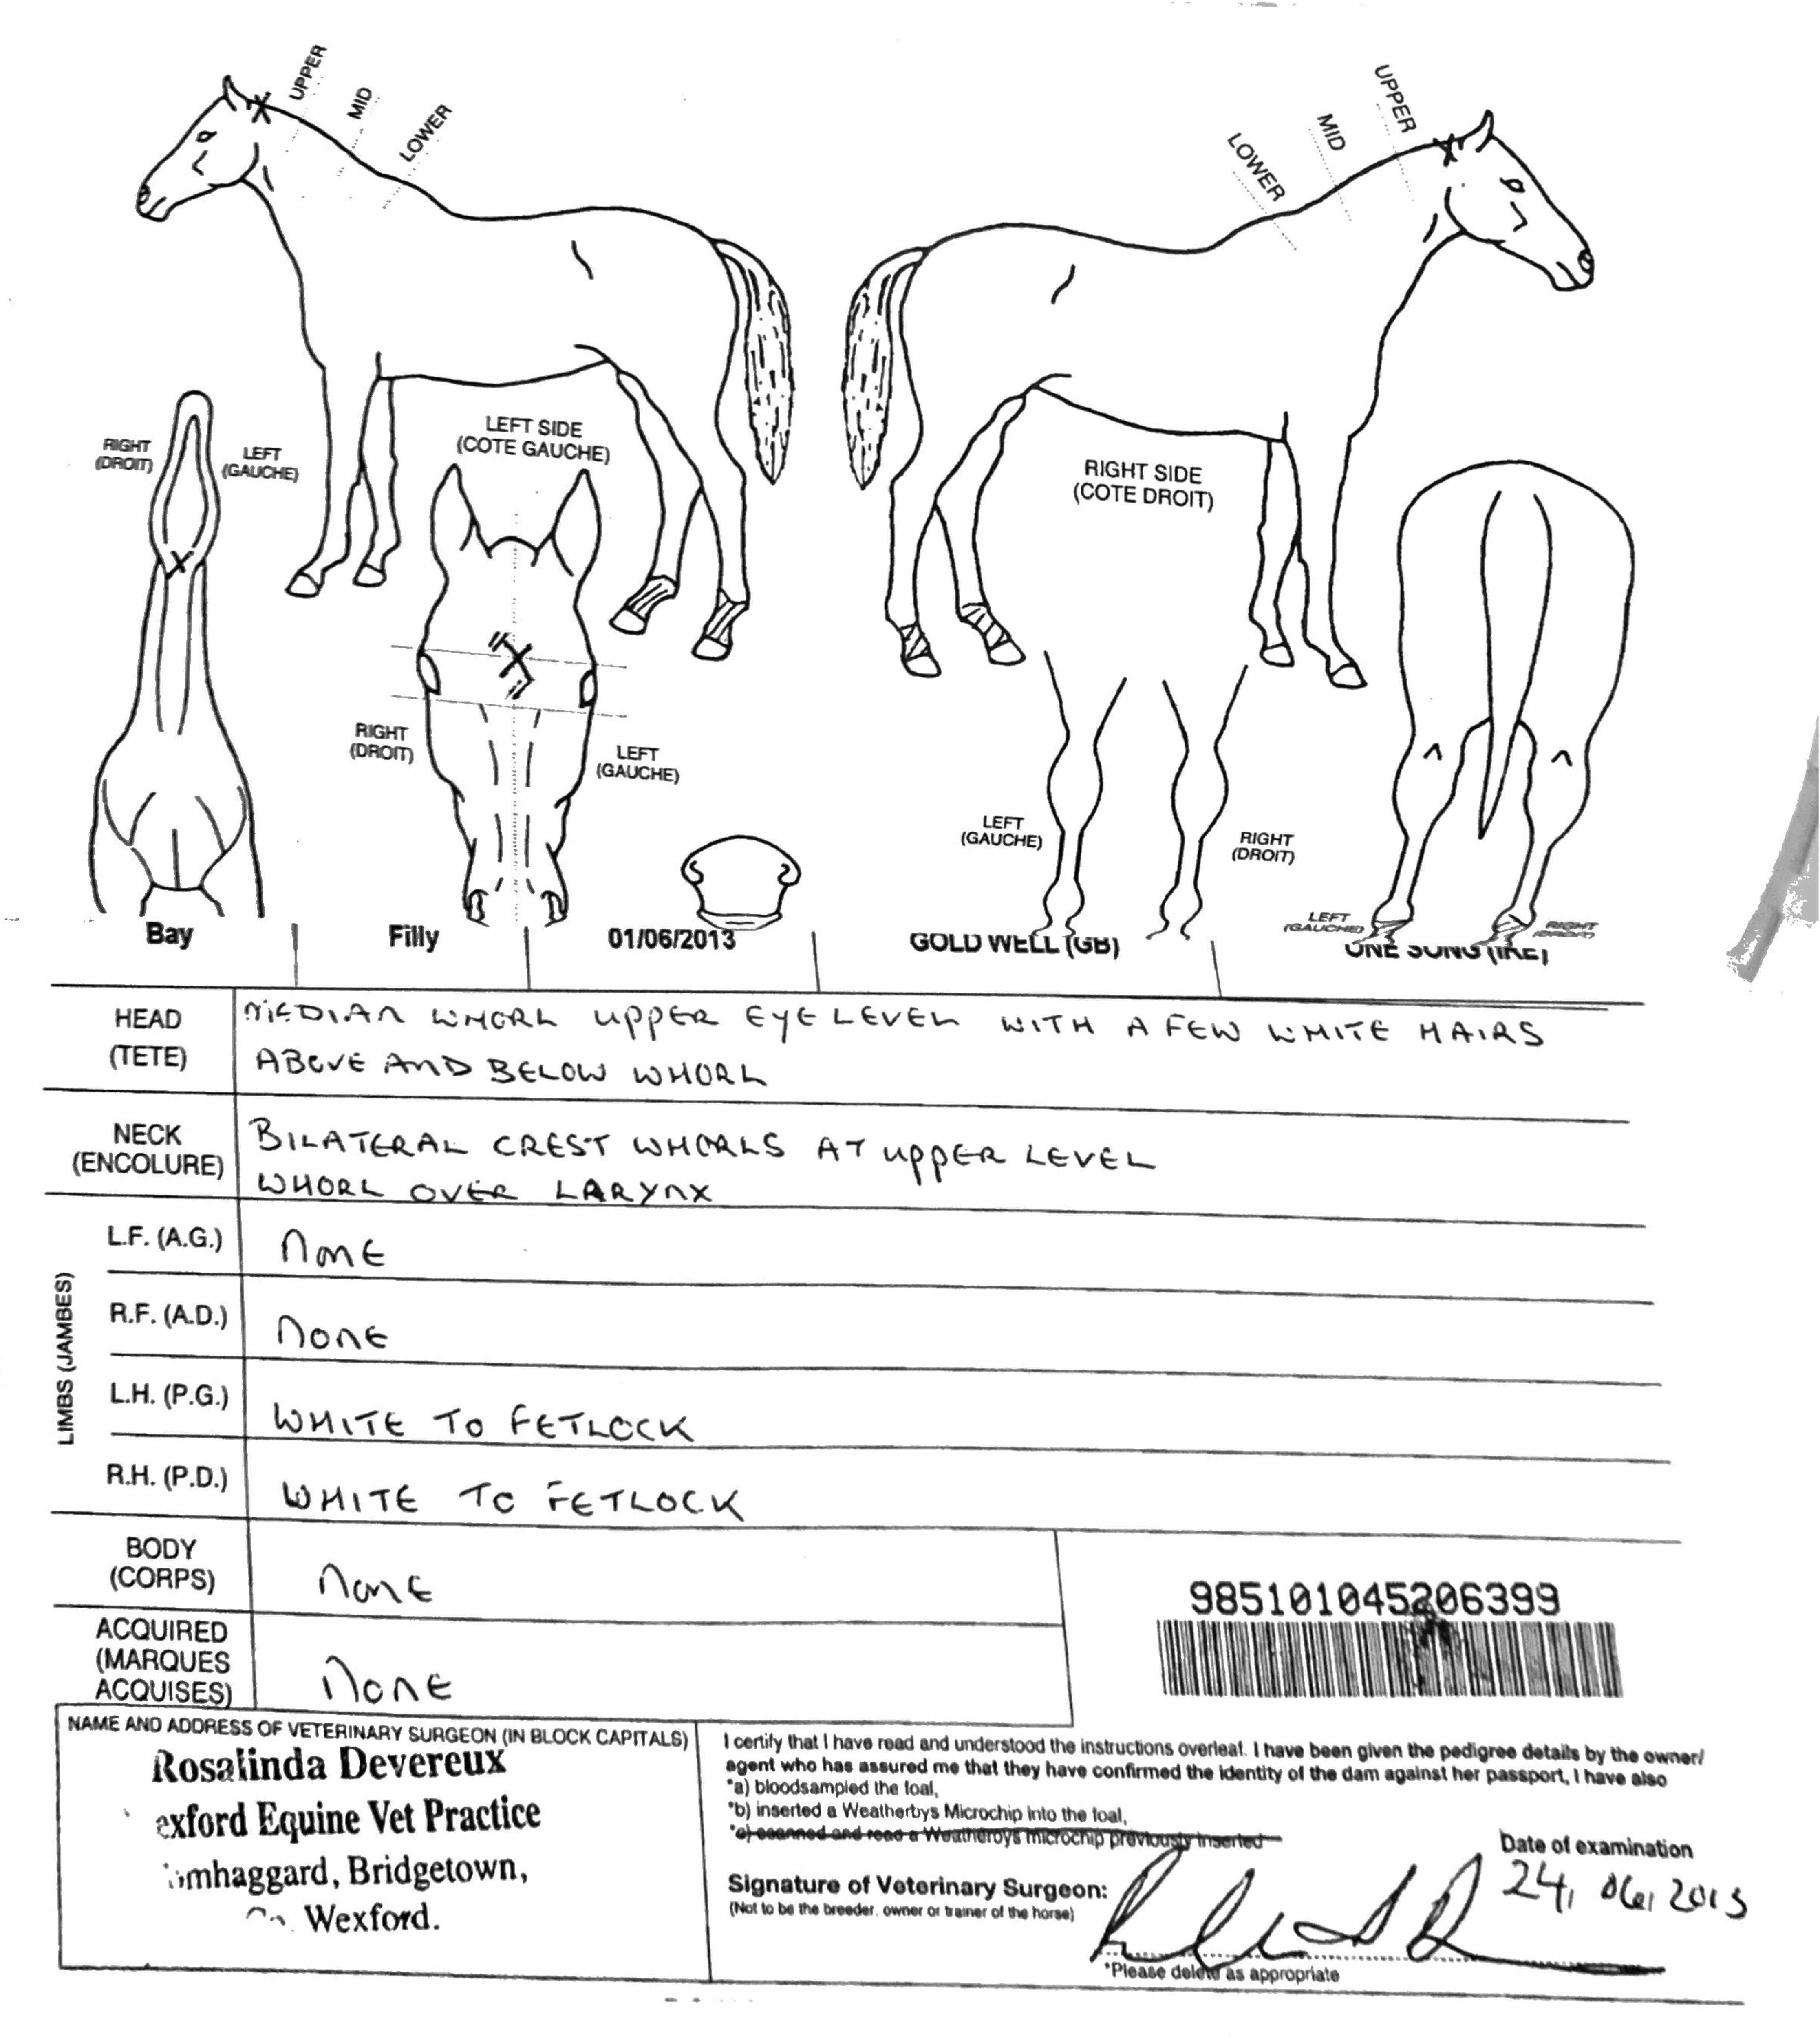 UPPER
MID
LOWER
UPPER
MID
LOWER
RIGHT
(DROIT)
LEFT
(GAUCHE)
LEFT SIDE
(COTE GAUCHE)
RIGHT SIDE
(COTE DROIT)
RIGHT
(DROIT)
LEFT
(GAUCHE)
LEFT
(GAUCHE)
RIGHT
(DROIT)
LEFT
(GAUCHE)
RIGHT
(DROIT)
Bay Filly 01/06/2013 GOLD WELL (GB) ONE SONG (IRE)
HEAD
(TETE)
MEDIAN WHORL UPPER EYE LEVEL WITH A FEW WHITE HAIRS
ABOVE AND BELOW WHORL
NECK
(ENCOLURE)
BILATERAL CREST WHORLS AT UPPER LEVEL
WHORL OVER LARYNX
LIMBS (JAMBES)
L.F. (A.G.) NONE
R.F. (A.D.) NONE
L.H. (P.G.) WHITE TO FETLOCK
R.H. (P.D.) WHITE TO FETLOCK
BODY
(CORPS)
NONE
ACQUIRED
(MARQUES
ACQUISES)
NONE
985101045206399
NAME AND ADDRESS OF VETERINARY SURGEON (IN BLOCK CAPITALS)
Rosalinda Devereux
exford Equine Vet Practice
mhaggard, Bridgetown,
Wexford.
I certify that I have read and understood the instructions overleaf. I have been given the pedigree details by the owner/
agent who has assured me that they have confirmed the identity of the dam against her passport, I have also
*a) bloodsampled the foal,
*b) inserted a Weatherbys Microchip into the foal,
*c) scanned and read a Weatherbys microchip previously inserted
Date of examination
24, 2013
Signature of Veterinary Surgeon:
(Not to be the breeder, owner or trainer of the horse)
*Please delete as appropriate